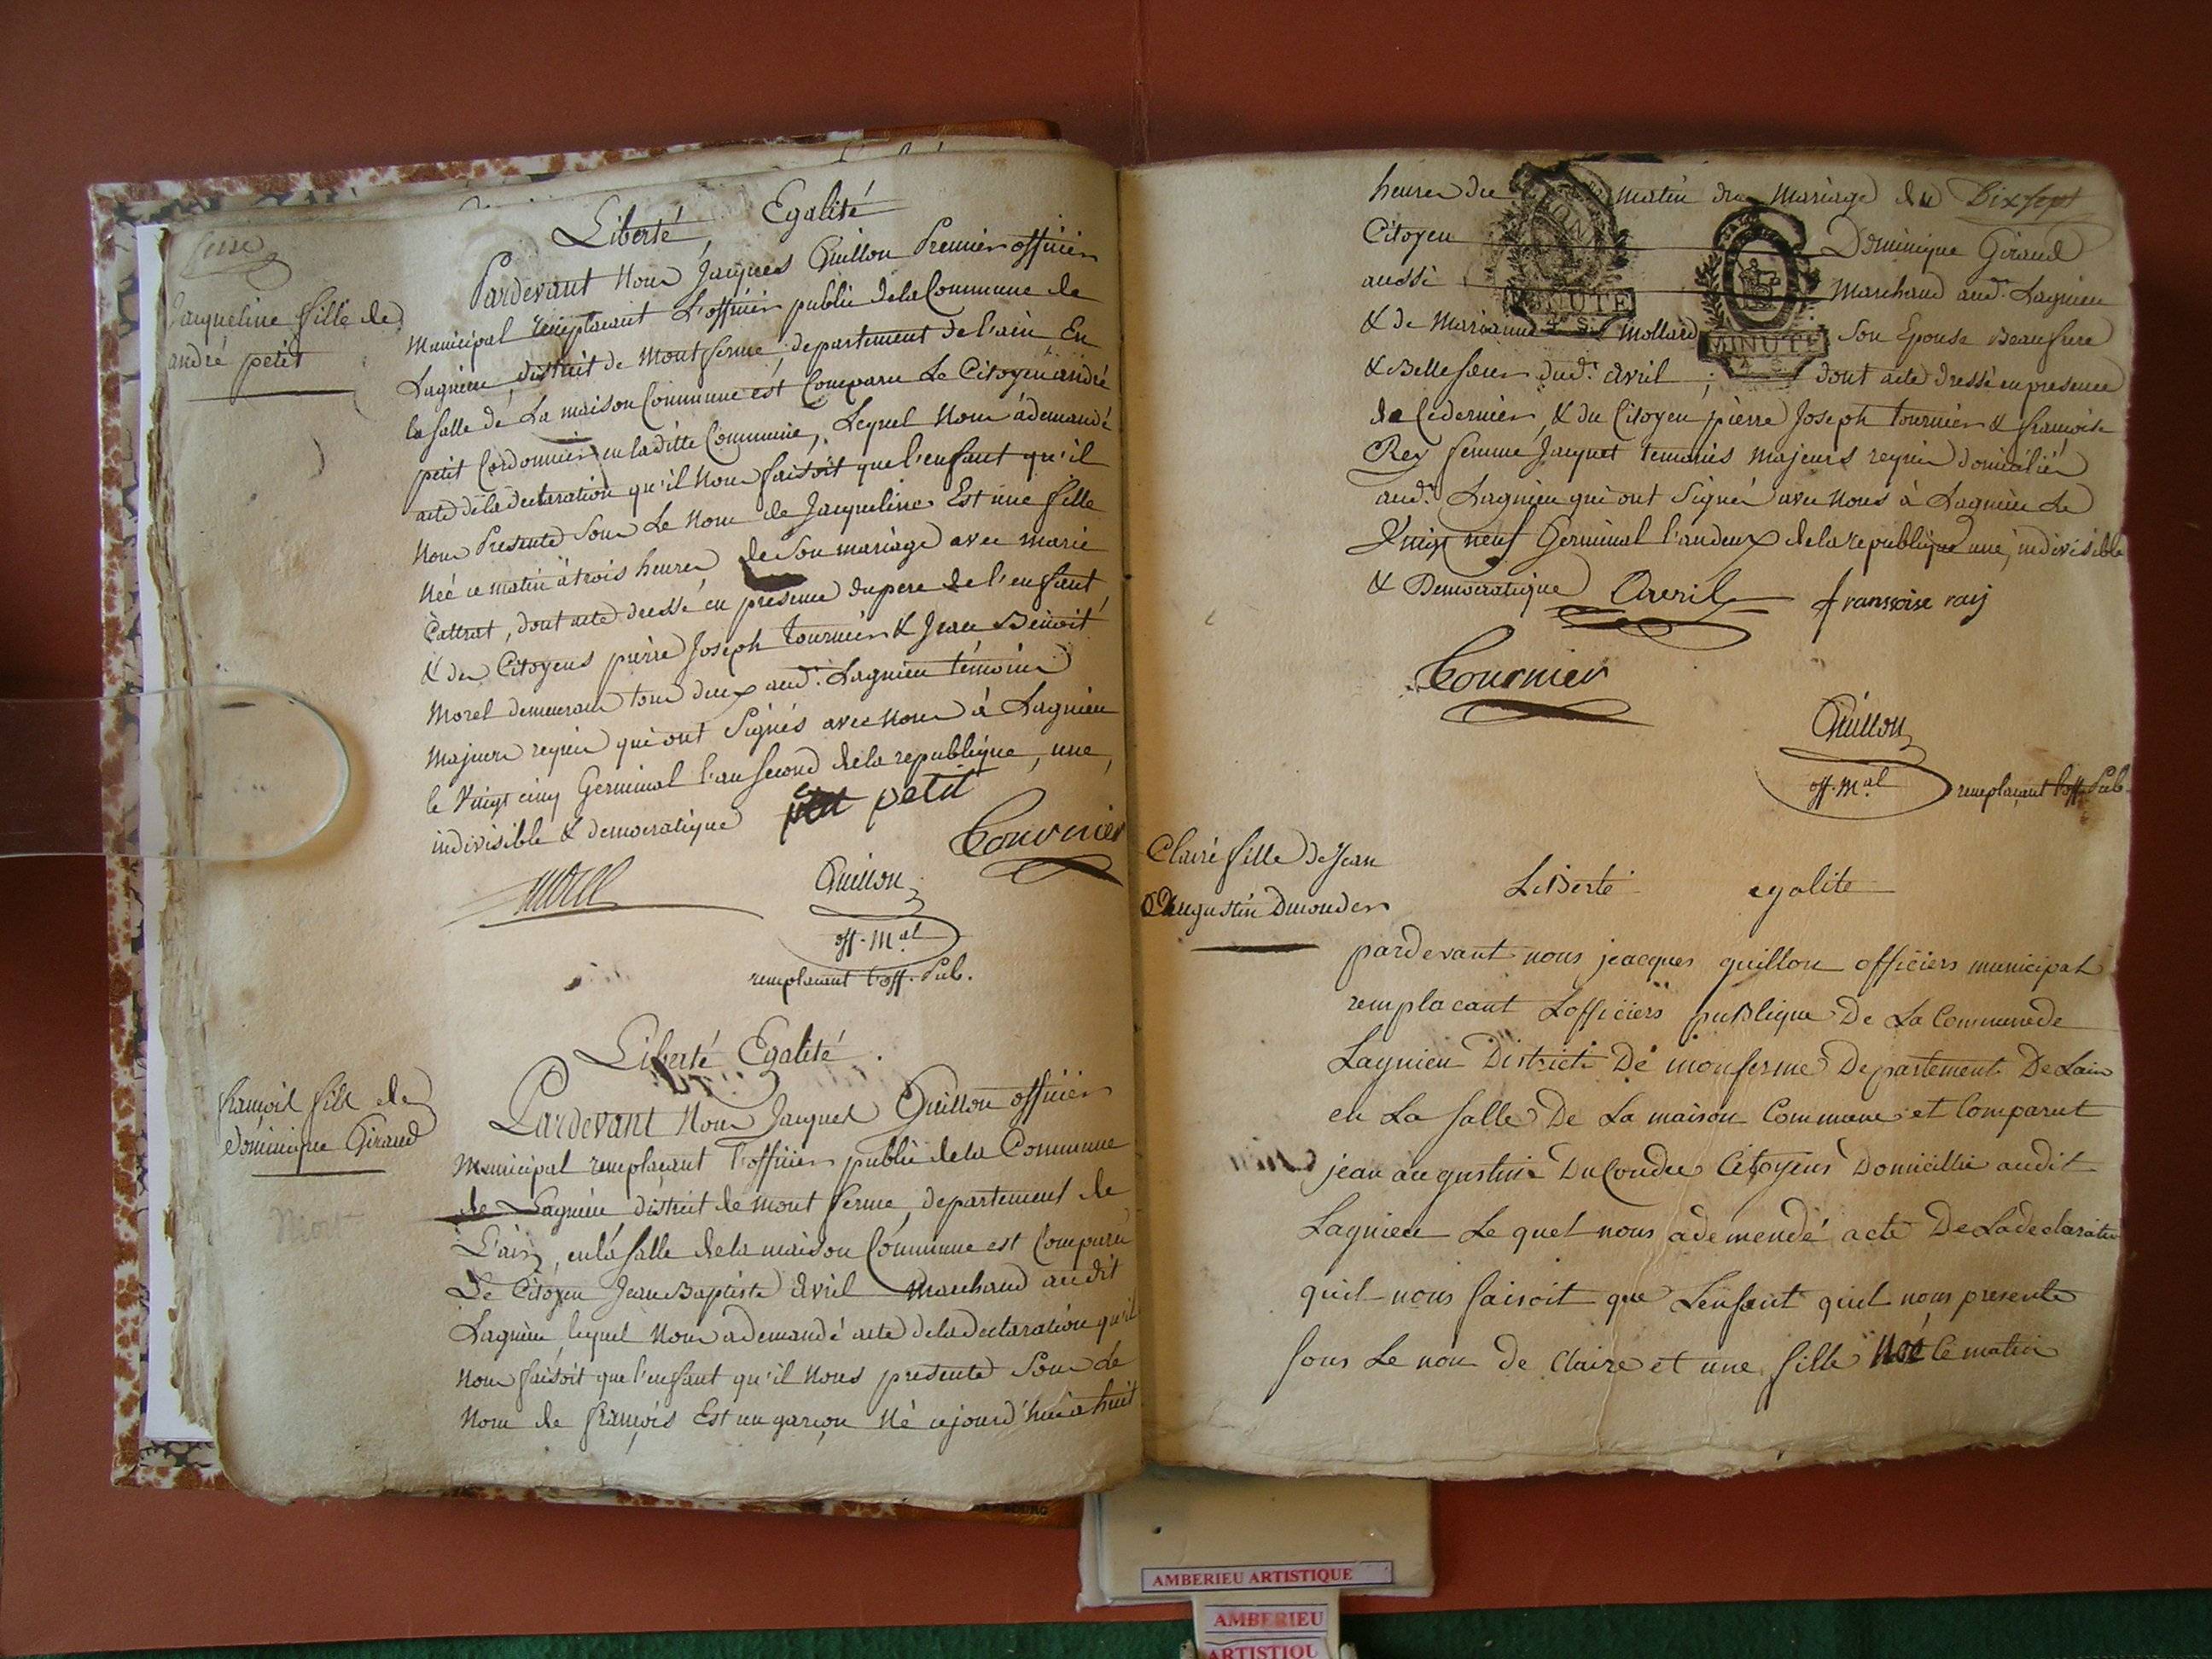 Seize
Jaqueline fille de
andré petit
Liberté, Egalité
Pardevant Nous Jacques Quillon Premier officier
Municipal remplacant L'officier public dela Commune de
Lagnieu, district de Montferme, departement de l'ain En
la salle de La maison Commune est Comparu Le Citoyen andré
petit Cordonnier en laditte Commune, Lequel Nous ademandé
acte dela declaration qu'il Nous faisoit que l'enfant qu'il
Nous Presente Sous Le Nom de Jacqueline Est une fille
Née ce matin à trois heures de Son mariage avec marie
Cattrat, dont acte dressé en presence dupere de l'enfant
& des Citoyens pierre Joseph Tournier & Jean Benoit
Morel demeurans tous deux aud. Lagnieu témoins
Majeurs requis qui ont Signés avec Nous à Lagnieu
le Vingt cinq Germinal l'an Second dela republique, une,
indivisible & democratique petit
Tournier
Morel
Quillon
off. M.al
remplacant l'off. Pub.
françois fils de
Dominique Giraud
Liberté Egalité.
Pardevant Nous Jacques Quillon officier
Municipal remplaçant l'officier public dela Commune
de Lagnieu district de Mont ferme, departement de
L'ain, en la Salle dela maison Commune est Comparu
Le Citoyen Jean Baptiste Avril Marchand audit
Lagnieu, lequel Nous ademandé acte dela declaration qu'il
Nous faisoit que l'enfant qu'il Nous presente Sous Le
Nom de françois Est un garçon Né cejourd'hui à huit
heures du matin du Mariage du Dix sept
Citoyen Dominique Giraud
aussi Marchand aud. Lagnieu
& de Marianne Mollard Son Epouse Beaufrere
& Bellesoeur dud. Avril ; dont acte dressé en presence
de Cedernier, & du Citoyen pierre Joseph Tournier & françoise
Rey femme Jacquet temoins Majeurs requis domiciliés
aud. Lagnieu qui ont Signé avec Nous à Lagnieu Le
Vingt neuf Germinal l'andeux dela republique une, indivisible
& Democratique Avril franssoise raij
Tournier
Quillon
off. M.al remplaçant l'off. Pub.
MINUTE
MINUTE
Claire fille de Jean
Augustin Ducouder
LiBerté egalite
pardevant nous jeacques quillon officiers municipal
remplacant Lofficiers puBlique De La Commune de
Lagnieu District De monferme Departement De Lain
en La salle De La maison Commune et Comparut
jean augustine Du Coudee Citoyens Domicillie audit
Lagnieu Le quel nous ademendé acte De Ladeclaration
quil nous faisoit que Lenfant quil nous presente
sous Le nom de Claire et une fille Née Ce matin
AMBERIEU ARTISTIQUE
AMBERIEU
ARTISTIQU